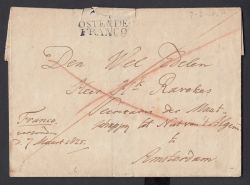 OSTENDE
FRANCO
Den Wel Edelen
Heer
Secretaris der Maat-
schappij tot Nut van 't Algem
te
Amsterdam
Franco
verzonden
d. 7 Maart 1825.